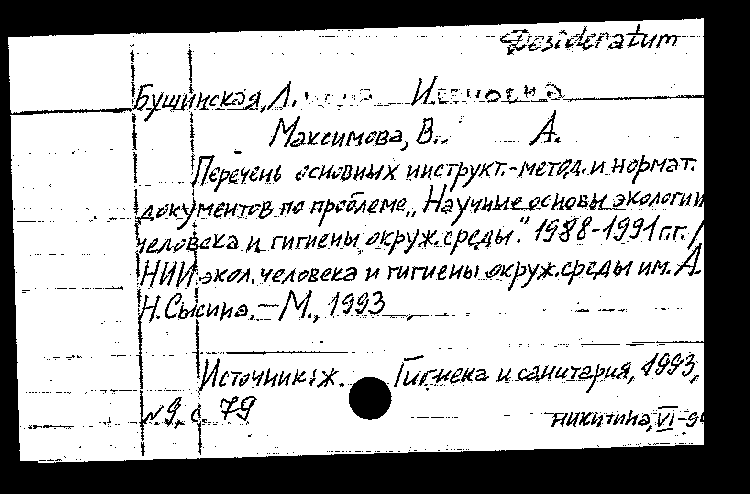 Desideratum
Бушинская, Л. И
Максимова, В. А.
Перечень основных инструкт.-метод. и нормат.
документов по проблеме „Научные основы экологии
человека и гигиены окруж. среды." 1988-1991 г.г. /
НИИ экол. человека и гигиены окруж. среды им. А.
Н. Сысина. — М., 1993
Источник: ж. Гигиена и санитария, 1993,
№9, с. 79
никитина, VI-9